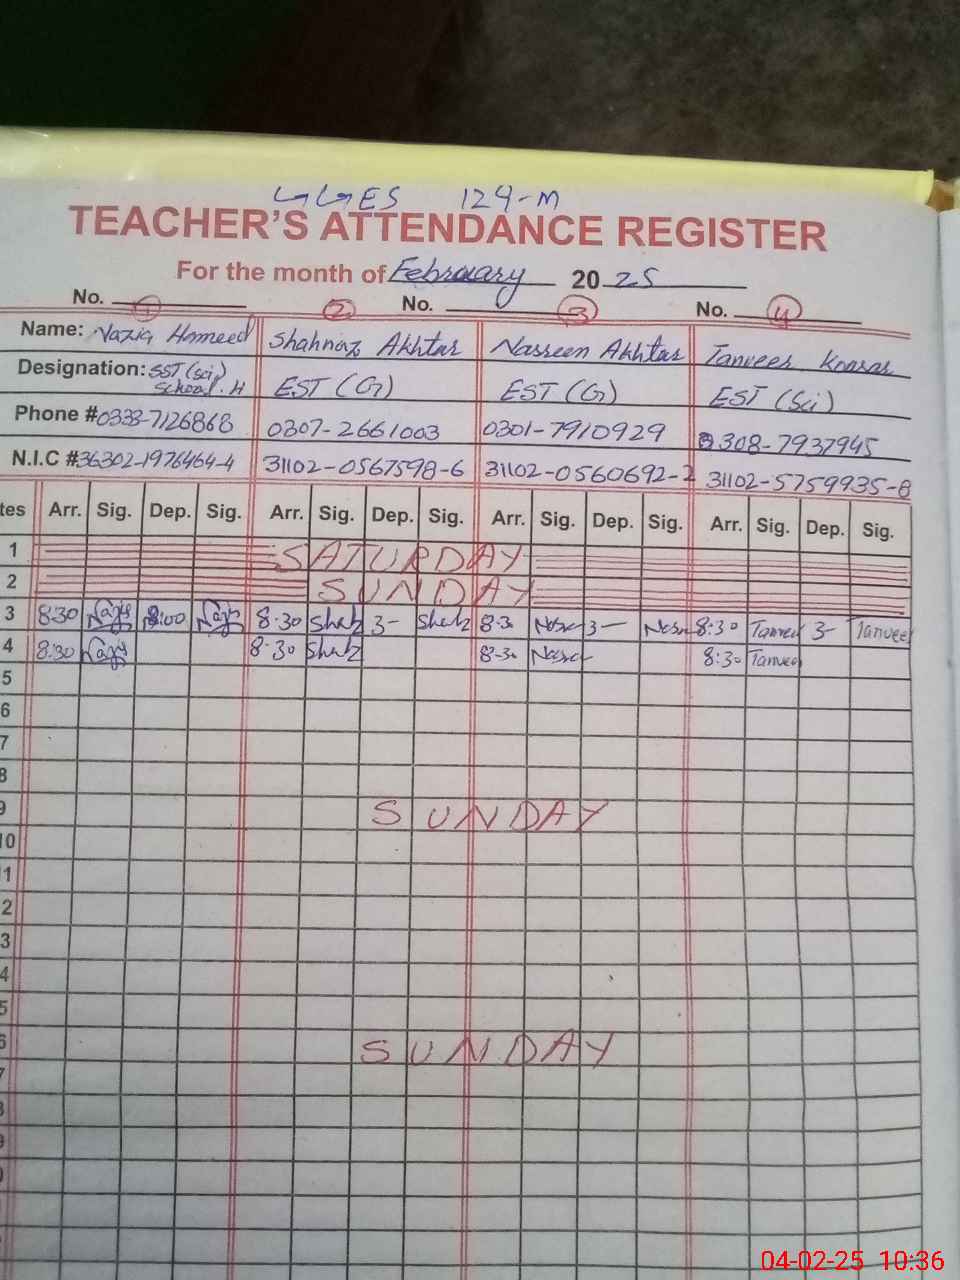 GGES 124-M
TEACHER'S ATTENDANCE REGISTER
For the month of February 2025
No. 1 2 No. 3 No. 4
Name: Nazia Hameed Shahnaz Akhtar Nasreen Akhtar Tanveer Kousar
Designation: SST (sci) School. H EST (G) EST (G) EST (Sci)
Phone # 0333-7126868 0307-2661003 0301-7910929 0308-7937945
N.I.C # 36302-1976464-4 31102-0567598-6 31102-0560692-2 31102-5759935-8
tes Arr. Sig. Dep. Sig. Arr. Sig. Dep. Sig. Arr. Sig. Dep. Sig. Arr. Sig. Dep. Sig.
1 SATURDAY
2 SUNDAY
3 8:30 3:00 8:30 Shahz 3- Shahz 8-30 3- 8:30 Tanveer 3- Tanveer
4 8:30 8:30 Shahz 8-30 8:30 Tanveer
5
6
7
8
9 SUNDAY
10
1
2
3
4
5
6 SUNDAY
7
8
9
0
04-02-25 10:36